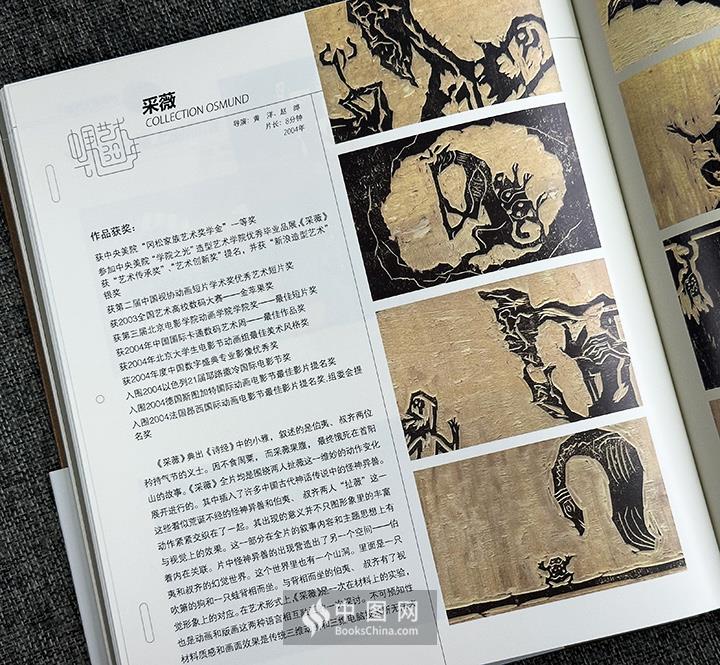 采薇
COLLECTION OSMUND
导演：黄 洋、赵 晔
片长：8分钟
2004年
作品获奖：
获中央美院“冈松家族艺术奖学金”一等奖
参加中央美院“学院之光”造型艺术学院优秀毕业品展，《采薇》
获“艺术传承奖”、“艺术创新奖”提名，并获“新浪造型艺术”
银奖
获第二届中国视协动画短片学术奖优秀艺术短片奖
获2003全国艺术高校数码大赛——金苹果奖
获第三届北京电影学院动画学院学院奖——最佳短片奖
获2004年中国国际卡通数码艺术周——最佳作品奖
获2004年北京大学生电影节动画组最佳美术风格奖
获2004年度中国数字盛典专业影像优秀奖
入围2004以色列21届耶路撒冷国际电影节奖
入围2004德国斯图加特国际动画电影节最佳影片提名奖
入围2004法国昂西国际动画电影节最佳影片提名奖、组委会提
名奖
《采薇》典出《诗经》中的小雅，叙述的是伯夷、叔齐两位
矜持气节的义士。因不食周粟，而采薇果腹，最终饿死在首阳
山的故事。《采薇》全片均是围绕两人扯薇这一维妙的动作变化
展开进行的。其中插入了许多中国古代神话传说中的怪神异兽。
这些看似荒诞不经的怪神异兽和伯夷、叔齐两人“扯薇”这一
动作紧紧交织在了一起。其出现的意义并不只图形象里的丰富
与视觉上的效果。这一部分在全片的叙事内容和主题思想上有
着内在关联。片中怪神异兽的出现营造出了另一个空间——伯
夷和叔齐的幻觉世界。这个世界里也有一个山洞。里面是一只
吹箫的狗和一只蛙背相而坐。与背相而坐的伯夷、叔齐有了视
觉形象上的对应。在艺术形式上，《采薇》是一次在材料上的实验，
也是动画和版画这两种语言相互 一次探讨。不可预知性
材料质感和画面效果是传统三维动 和三维电脑
中图网
BooksChina.com